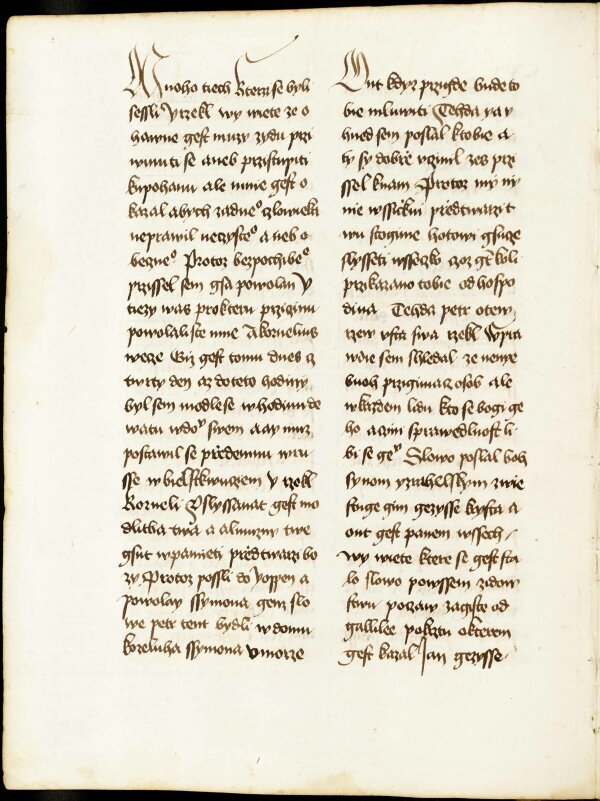 Mnoho tiech kterzi se byli
sessli Y rzekl wy wiete ze o
hawne gest muzy zydu przi
winuti se aneb przistupiti
kupohanu ale mnie gest o
kazal abych zadneº czlowieka
neprawil neczysteº a neb o
becneº Protoz bezpochibeº
przissel sem gsa powolan Y
tiezy was prokteru prziginu
powolali ste mne A kornelius
wece Giz gest tomu dnes cz
twrty den az do teto hodiny
byl sem modle se w hodinu de
watu w domu swem a ay muz
postawil se przedemnu w ru
sse w bielstkwucziem y rzekl
Korneli Vslyssanat gest mo
dlitba twa a almuzny twe
gsut w pamieti przed twarzi bo
zy Protoz possli do Joppen a
powolay ssymona genz slo
we petr tent bydli w domu
kozeluha ssymona v morze
Ont kdyz przigde bude to
bie mluwiti Tehda yay
hned sem poslal k tobie a
ty sy dobrze vczinil zes przi
ssel k nam Protoz my ny
nie wssickni przed twarzi t
wu stogime hotowi gsucze
slysseti wssecko czoz gt koli
przikazano tobie od hospo
dina Tehda petr otew
rzew vsta swa rzekl W prá
wdie sem shledal ze nenie
buoh przigimacz osob ale
w kazdem lidu kto se bogi ge
ho a czini sprawedlnost li
bi se geº Slowo poslal boh
synom yzrahelskym zwie
stuge gim gezysse krysta a
ont gest panem wssech
wy wiete ktere se gest sta
lo slowo powssem zidow
stwu poczaw zagiste od
gallilee po krztu o kterem
gest kazal Jan gezysse